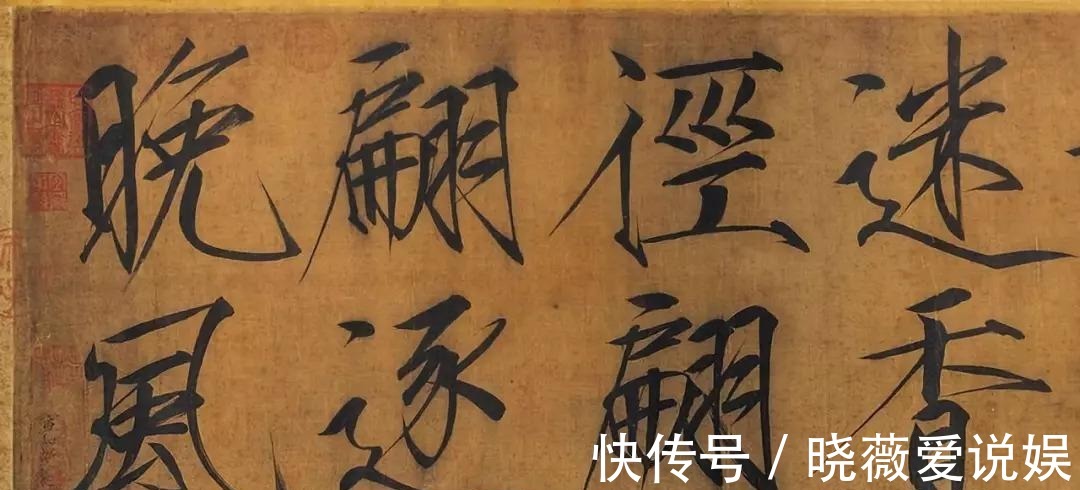 迷香
徑翩
翩逐
晚風
快传号 / 晓薇爱说娱